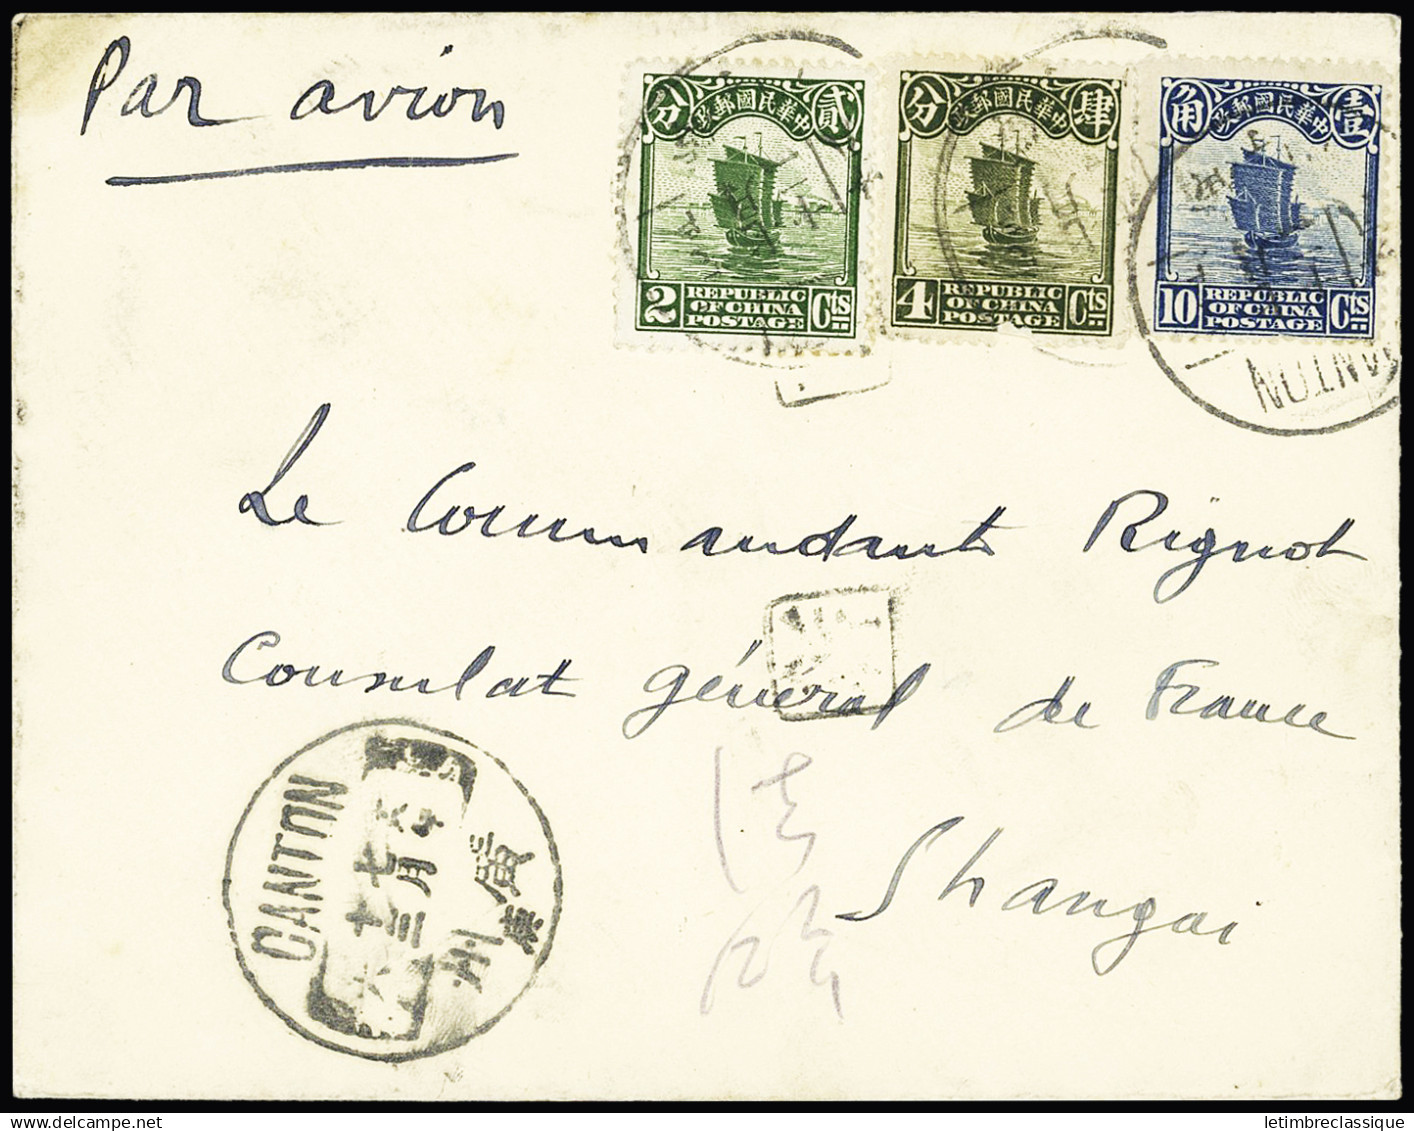 Par avion
分 中華民國郵政 貳
2 REPUBLIC OF CHINA POSTAGE Cts
分 中華民國郵政 肆
4 REPUBLIC OF CHINA POSTAGE Cts
角 中華民國郵政 壹
10 REPUBLIC OF CHINA POSTAGE Cts
CANTON
Le Commandant Rignot
Consulat général de France
Shangai
法
CANTON
七月
十三
廣州
delcampe.net
letimbreclassique